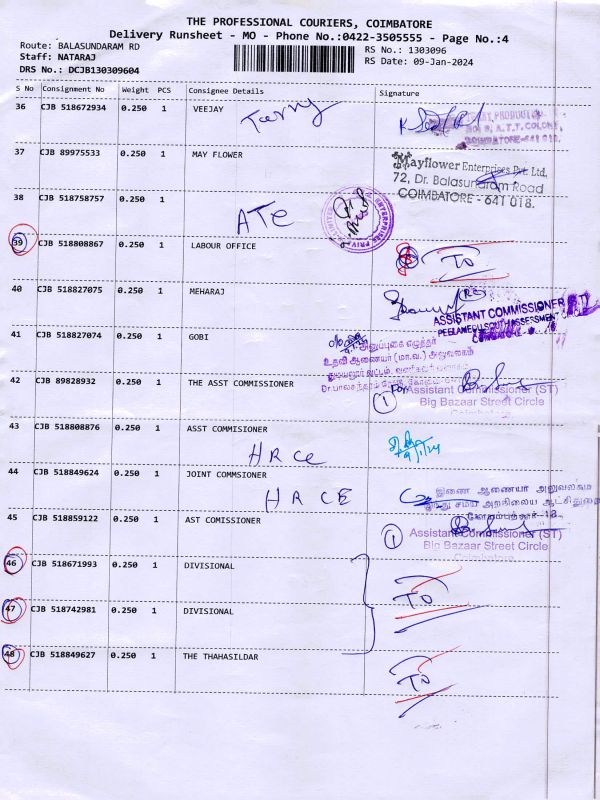 THE PROFESSIONAL COURIERS, COIMBATORE
Delivery Runsheet - MO - Phone No.:0422-3505555 - Page No.:4
Route: BALASUNDARAM RD
RS No.: 1303096
Staff: NATARAJ
RS Date: 09-Jan-2024
DRS No.: DCJB130309604
S No Consignment No Weight PCS Consignee Details Signature
36 CJB 518672934 0.250 1 VEEJAY
A.T.T. COLONY,
COIMBATORE-641 018.
37 CJB 89975533 0.250 1 MAY FLOWER
Mayflower Enterprises Pvt. Ltd,
72, Dr. Balasundaram Road
COIMBATORE - 641 018.
38 CJB 518758757 0.250 1
ATC
39 CJB 518808867 0.250 1 LABOUR OFFICE
TO
40 CJB 518827075 0.250 1 MEHARAJ
ASSISTANT COMMISSIONER (ST)
PEELAMEDU SOUTH ASSESSMENT CIRCLE
41 CJB 518827074 0.250 1 GOBI
உதவி ஆணையர் (மா.வ.) அலுவலகம்
42 CJB 89828932 0.250 1 THE ASST COMMISSIONER
1 For Assistant Commissioner (ST)
Big Bazaar Street Circle
Coimbatore
43 CJB 518808876 0.250 1 ASST COMMISIONER
HRCE
9/1/24
44 CJB 518849624 0.250 1 JOINT COMMSIONER
HRCE
இணை ஆணையர் அலுவலகம்
இந்து சமய அறநிலைய ஆட்சித்துறை
45 CJB 518859122 0.250 1 AST COMISSIONER
1 Assistant Commissioner (ST)
Big Bazaar Street Circle
Coimbatore
46 CJB 518671993 0.250 1 DIVISIONAL
TO
47 CJB 518742981 0.250 1 DIVISIONAL
48 CJB 518849627 0.250 1 THE THAHASILDAR
TO